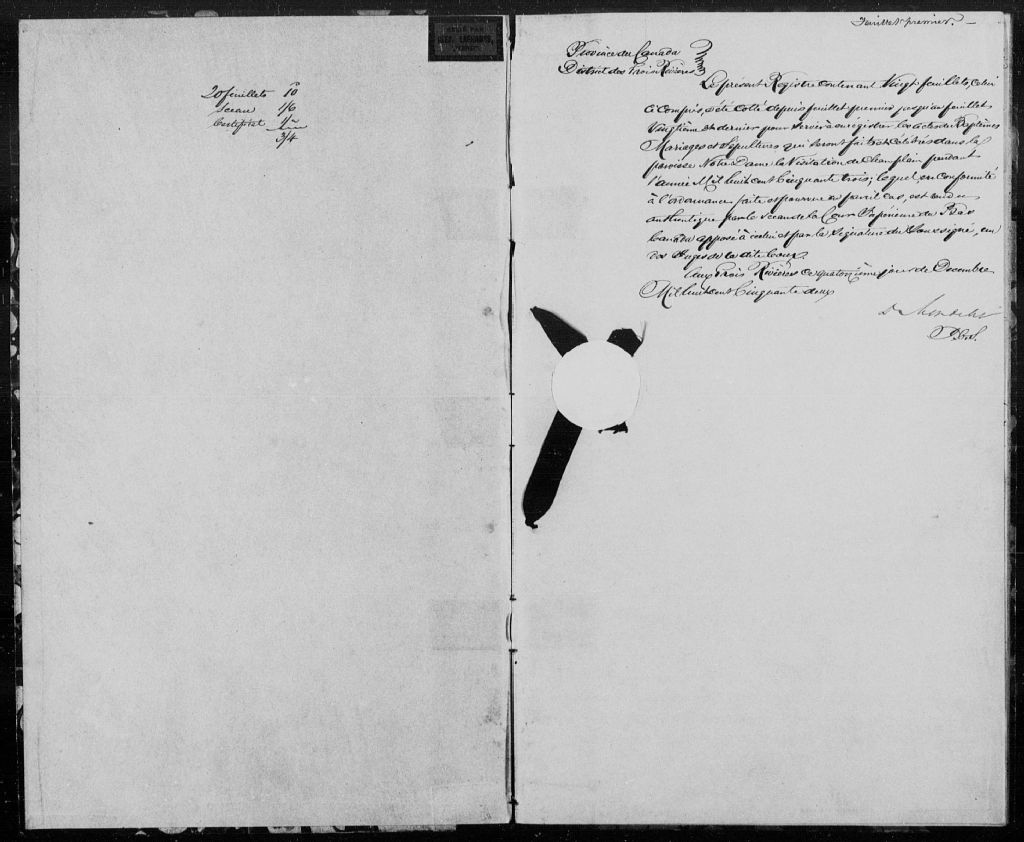 20 feuillets 10
Sceau 1/6
Certificat 1/"
3/4
Feuillet premier. —
Province du Canada
District des Trois Rivières
Le présent Registre contenant Vingt feuillets, celui
ci compris, a été cotté depuis feuillet premier jusqu'au feuillet
Vingtième et dernier pour servir à enrégistrer les actes de Baptêmes
Mariages et Sépultures qui seront faits et célébrés dans la
paroisse Notre Dame la Visitation de Champlain pendant
l'année Mil huit cent Cinquante trois; lequel, en conformité
à l'ordonnance faite et pourvue en pareil cas, est rendu
authentique par le Sceau de la Cour Supérieure du Bas
Canada apposé à icelui et par la Signature du Soussigné, un
des Juges de la dite Cour.
Aux Trois Rivières ce quatorzième jour de Décembre
Mil huit cent Cinquante deux